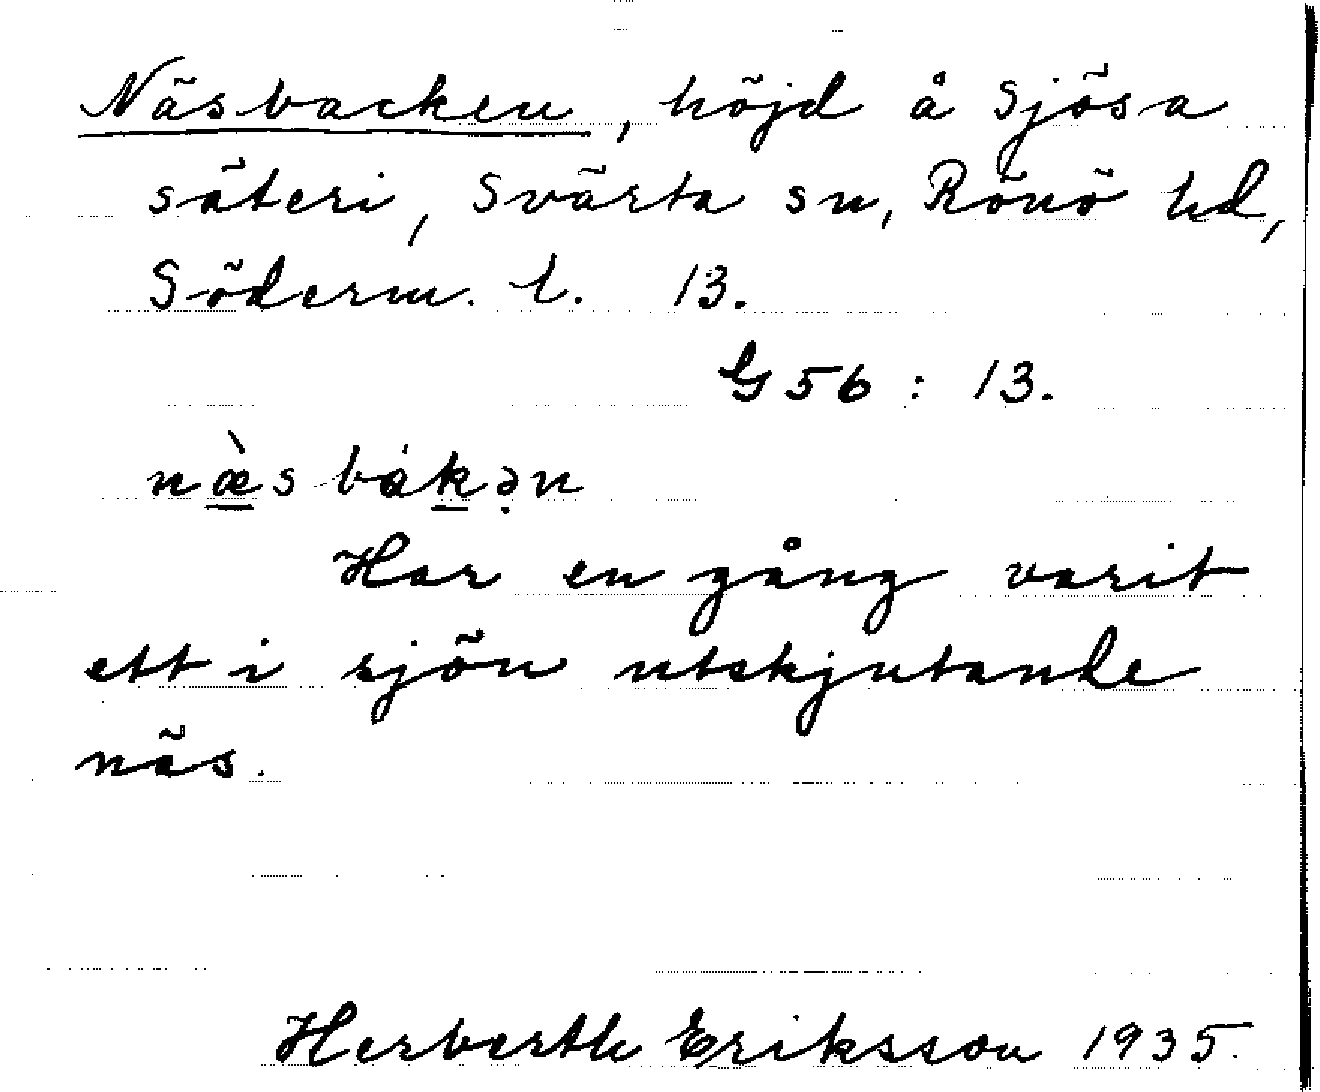 Näsbacken, höjd å Sjösa
säteri, Svärta sn, Rönö hd,
Söderm. l. 13.
G 56 : 13.
næ̀sbákən
Har en gång varit
ett i sjön utskjutande
näs.
Herberth Eriksson 1935.